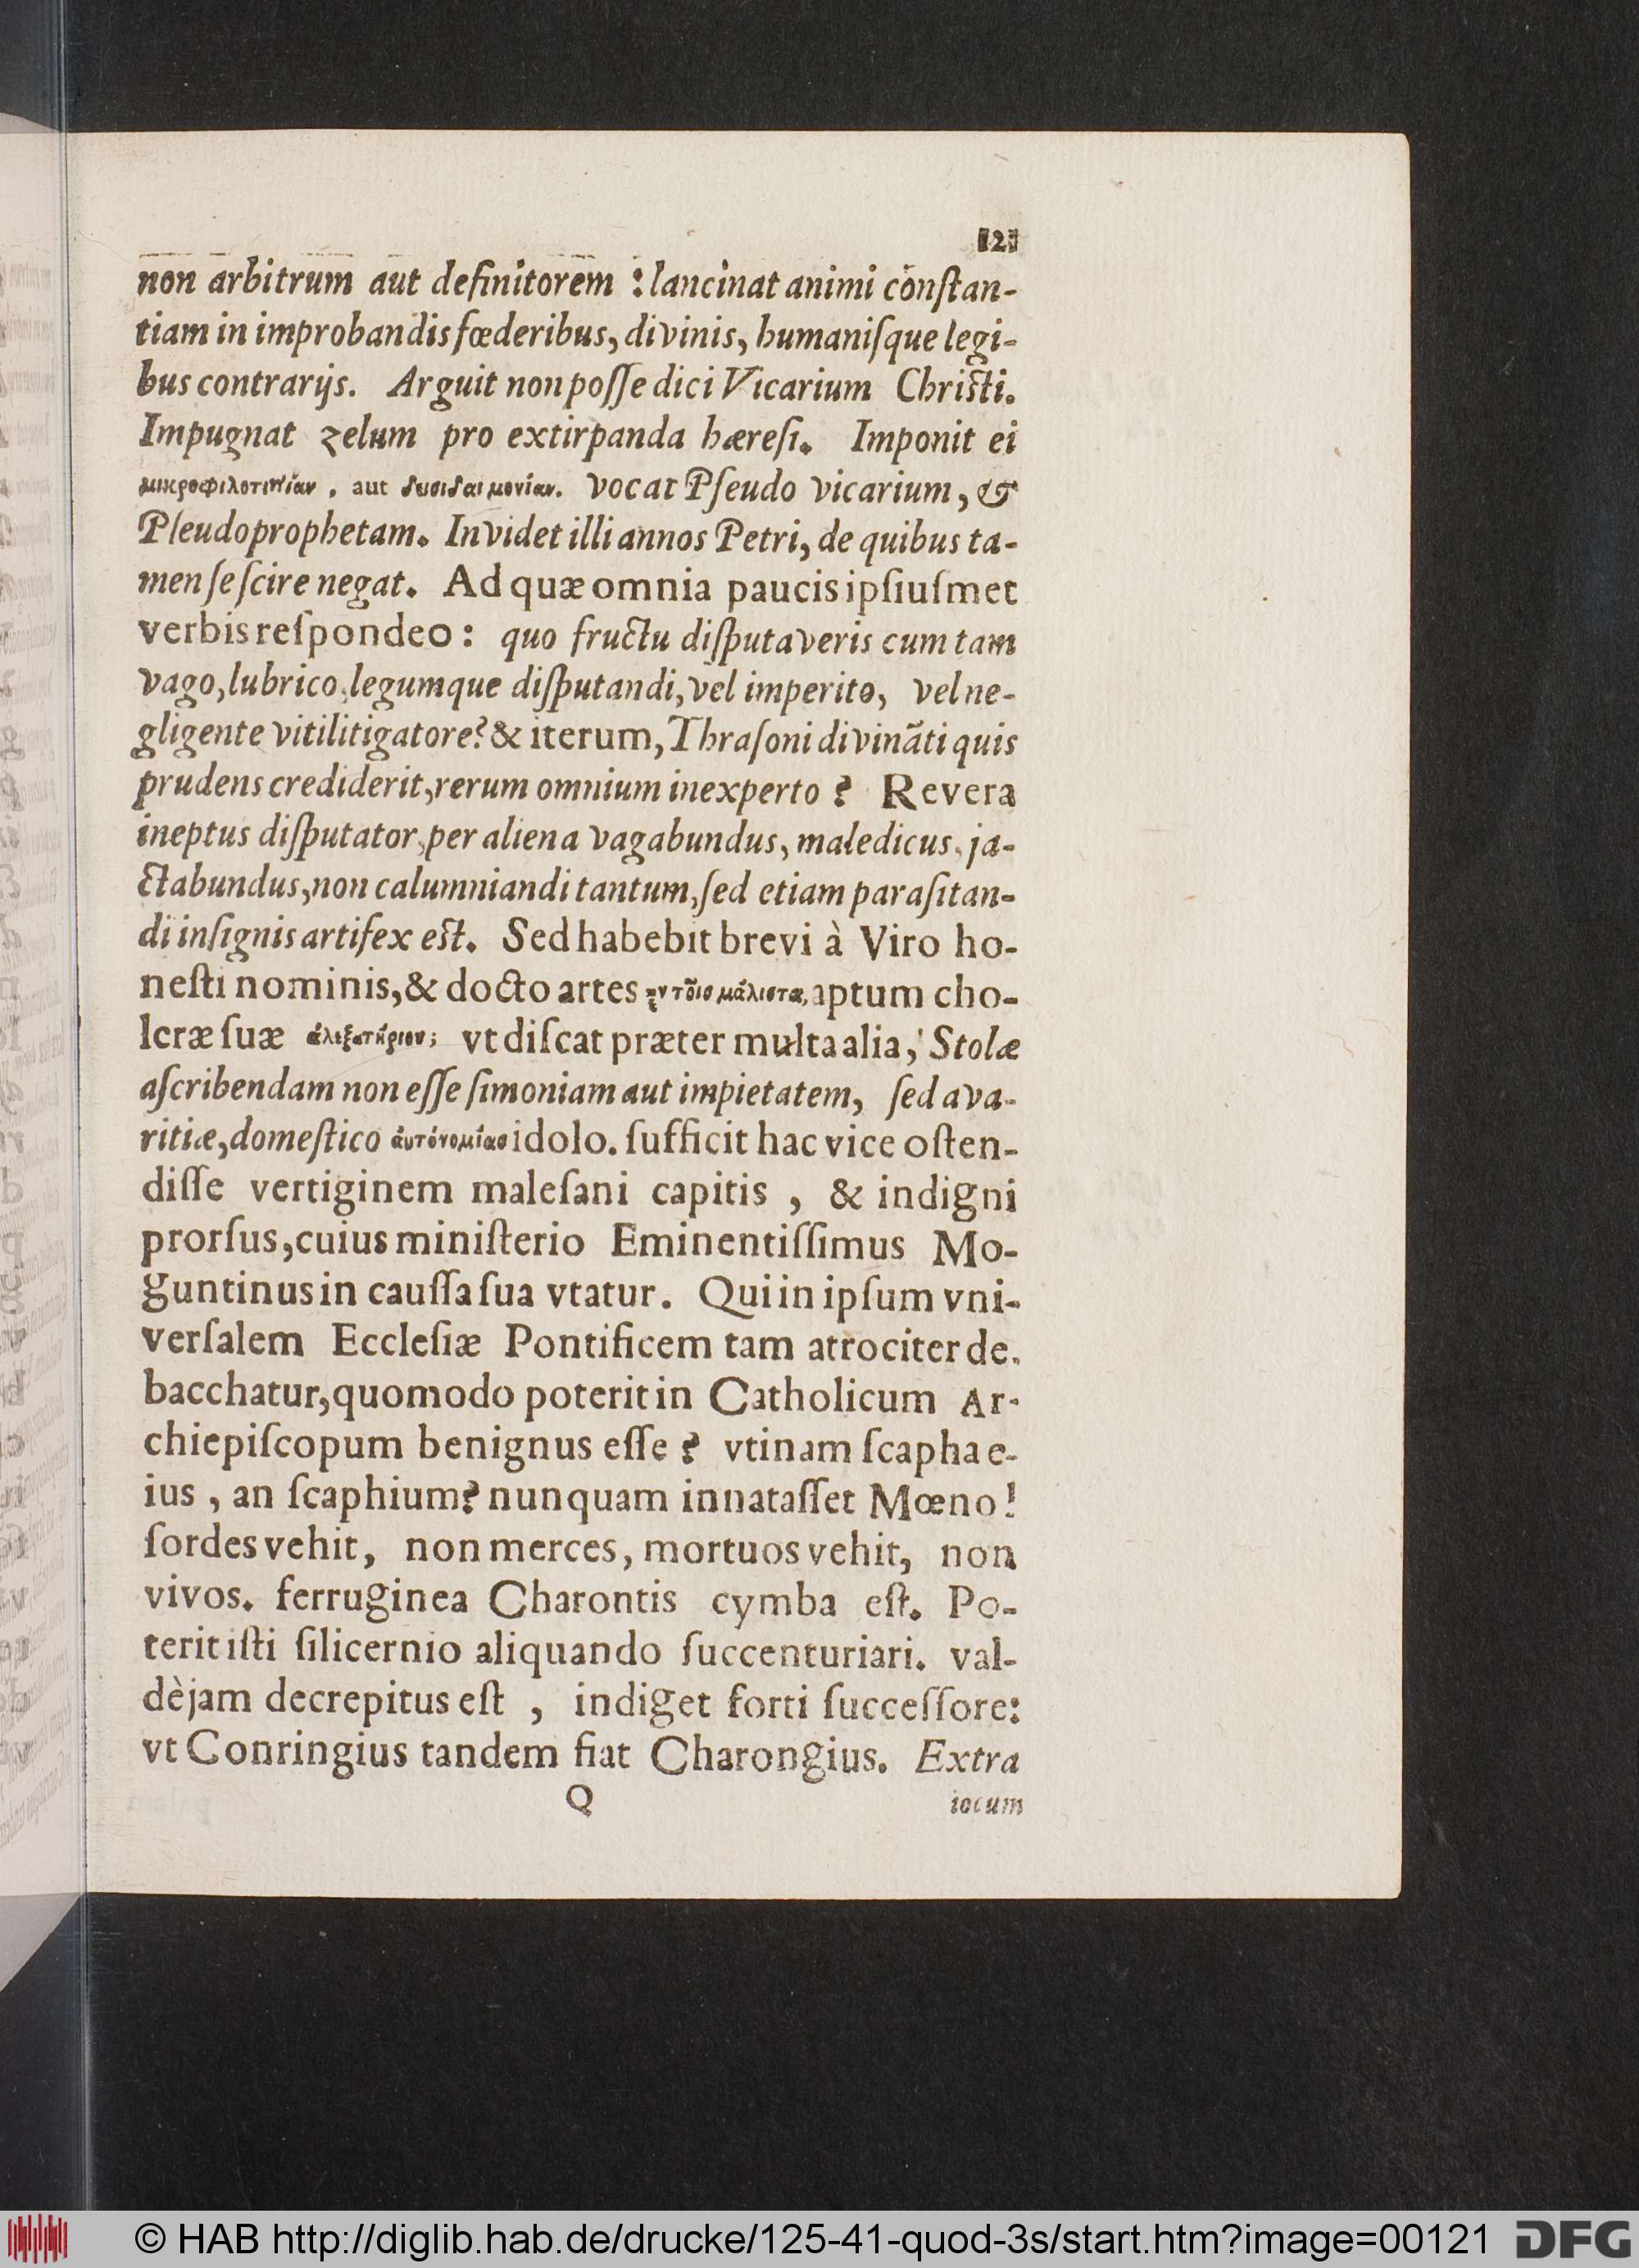 121
non arbitrum aut definitorem : lancinat animi conſtan-
tiam in improbandis fœderibus, divinis, humaniſque legi-
bus contrarijs. Arguit non poſſe dici Vicarium Chriſti.
Impugnat zelum pro extirpanda hæreſi. Imponit ei
μικροφιλοτιμίαν, aut δεισιδαιμονίαν. vocat Pſeudo vicarium, &
Pſeudoprophetam. Invidet illi annos Petri, de quibus ta-
men ſe ſcire negat. Ad quæ omnia paucis ipſiuſmet
verbis reſpondeo: quo fructu diſputaveris cum tam
vago, lubrico, legumque diſputandi, vel imperito, vel ne-
gligente vitilitigatore? & iterum, Thraſoni divinãti quis
prudens crediderit, rerum omnium inexperto ? Revera
ineptus diſputator, per aliena vagabundus, maledicus, ja-
ctabundus, non calumniandi tantum, ſed etiam paraſitan-
di inſignis artifex eſt. Sed habebit brevi à Viro ho-
neſti nominis, & docto artes τοῖσ μάλιστα, aptum cho-
leræ ſuæ ἀλεξατήριον; vt diſcat præter multa alia, Stolæ
aſcribendam non eſſe ſimoniam aut impietatem, ſed ava-
ritiæ, domeſtico ἀυτόνομίασ idolo. ſufficit hac vice oſten-
diſſe vertiginem maleſani capitis , & indigni
prorſus, cuius miniſterio Eminentiſſimus Mo-
guntinus in cauſſa ſua vtatur. Qui in ipſum vni-
verſalem Eccleſiæ Pontificem tam atrociter de-
bacchatur, quomodo poterit in Catholicum Ar-
chiepiſcopum benignus eſſe ? vtinam ſcapha e-
ius , an ſcaphium? nunquam innataſſet Mœno!
ſordes vehit, non merces, mortuos vehit, non
vivos. ferruginea Charontis cymba eſt. Po-
terit iſti ſilicernio aliquando ſuccenturiari. val-
dè jam decrepitus eſt , indiget forti ſucceſſore:
vt Conringius tandem fiat Charongius. Extra
Q iocum
© HAB http://diglib.hab.de/drucke/125-41-quod-3s/start.htm?image=00121 DFG